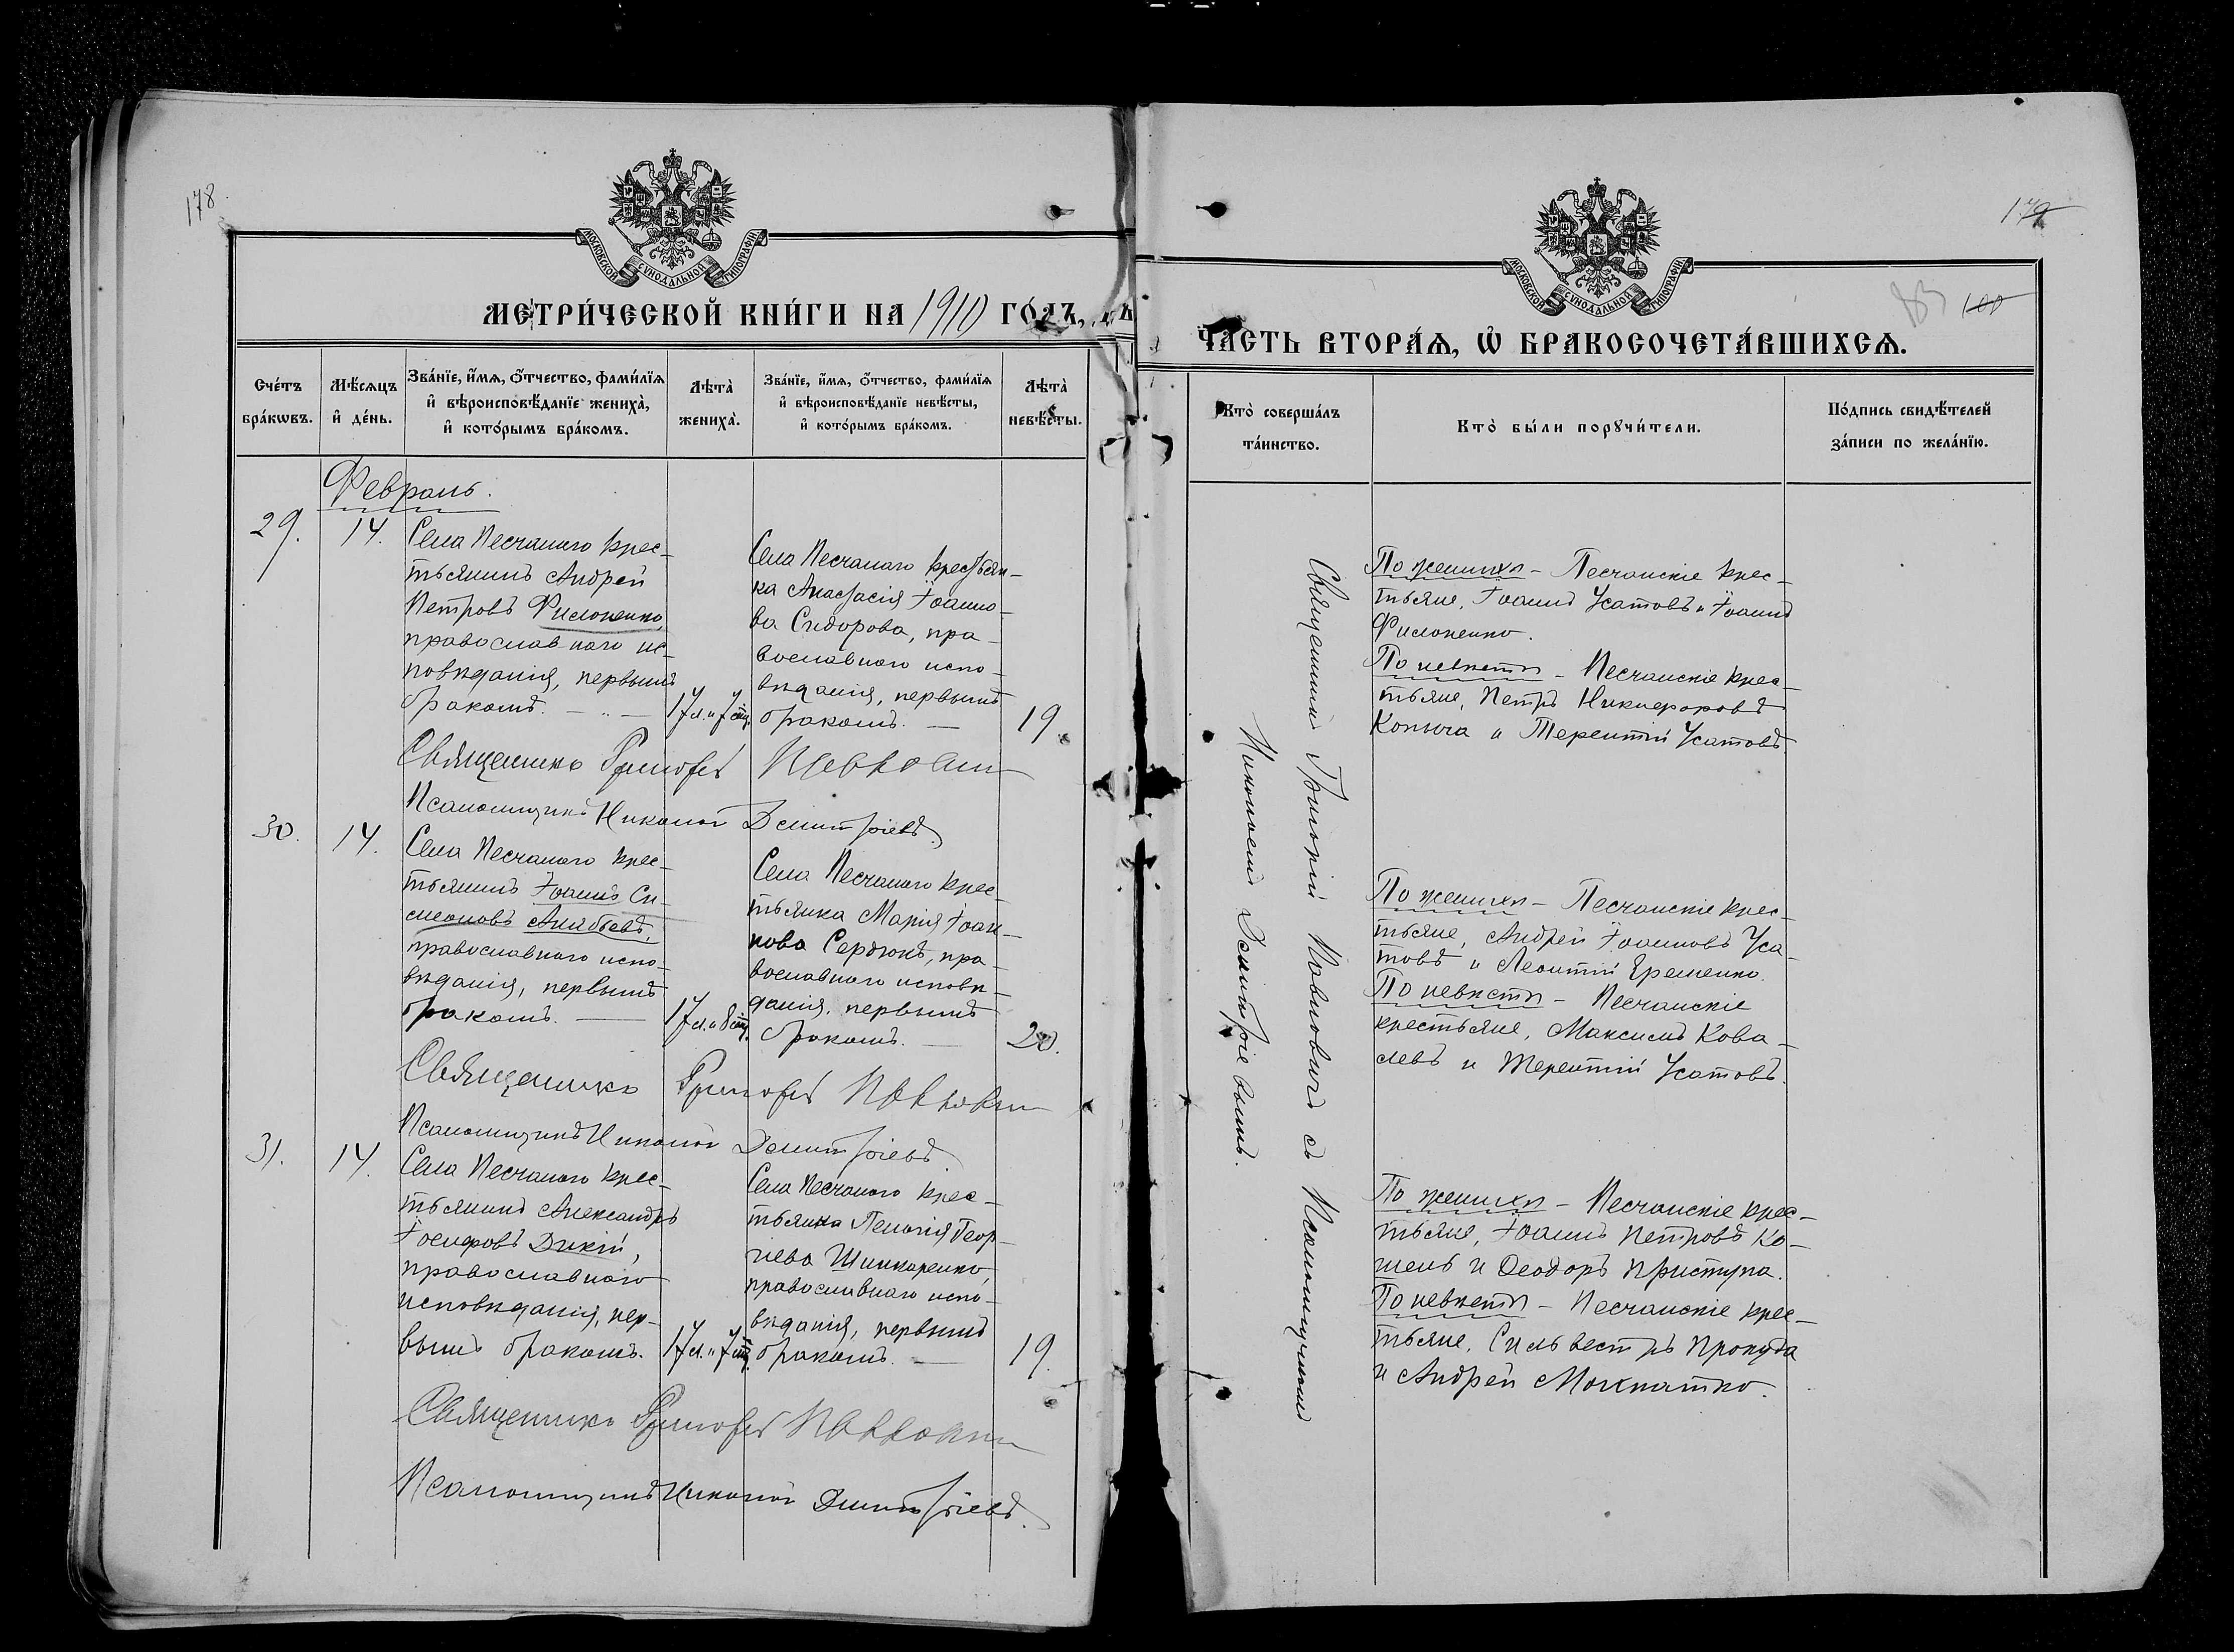 178.
МОСКОВСКОЙ СѴНОДАЛЬНОЙ ТИПОГРАФІИ
МЕТРИ́ЧЕСКОЙ КНИ́ГИ НА 1910 ГО́ДЪ,
Сче́тъ бра́кѡвъ.
Мѣ́сяцъ и҆ де́нь.
Зва́нїе, и҆́мя, ѻ҆́тчество, фами́лїя и҆ вѣроисповѣ́данїе жениха̀, и҆ кото́рымъ бра́комъ.
Лѣта̀ жениха̀.
Зва́нїе, и҆́мя, ѻ҆́тчество, фами́лїя и҆ вѣроисповѣ́данїе невѣ́сты, и҆ кото́рымъ бра́комъ.
Лѣта̀ невѣ́сты.
Февраль.
29.
14.
Села Песчанаго крес-
тьянинъ Андрей
Петровъ Филоненко,
православнаго ис-
повѣданія, первымъ
бракомъ.
17 л. и 7 мц.
Села Песчанаго крестьян-
ка Анастасія Іоанно-
ва Сидорова, пра-
вославнаго испо-
вѣданія, первымъ
бракомъ. —
19.
Священникъ Григорій Павлович
Псаломщикъ Николай Димитріевъ.
30.
14.
Села Песчанаго крес-
тьянинъ Іоаннъ Си-
меоновъ Анабьевъ,
православнаго испо-
вѣданія, первымъ
бракомъ. —
17 л. и 8 мц.
Села Песчанаго крес-
тьянка Марія Іоан-
нова Сердюкъ, пра-
вославнаго исповѣ-
данія, первымъ
бракомъ. —
20.
Священникъ Григорій Павлович
Псаломщикъ Николай Димитріевъ.
31.
14.
Села Песчанаго крес-
тьянинъ Александръ
Іосифовъ Дикій,
православнаго
исповѣданія, пер-
вымъ бракомъ.
17 л. и 7 мц.
Села Песчанаго крес-
тьянка Пелагія Геор-
гіева Шинкаренко,
православнаго испо-
вѣданія, первымъ
бракомъ. —
19.
Священникъ Григорій Павлович
Псаломщикъ Николай Димитріевъ.
179
100
83
МОСКОВСКОЙ СѴНОДАЛЬНОЙ ТИПОГРАФІИ
ЧА́СТЬ ВТОРА́Я, Ѡ҆ БРАКОСОЧЕТА́ВШИХСЯ.
Кто̀ соверша́лъ та́инство.
Кто̀ бы́ли порꙋчи́тели.
По́дпись свидѣ́телей за́писи по жела́нїю.
Священникъ Григорій Павловичъ съ Псаломщикомъ
Николаемъ Димитріевымъ.
По женихѣ – Песчанскіе крес-
тьяне, Іоаннъ Усатовъ и Іоаннъ
Филоненко.
По невѣстѣ – Песчанскіе крес-
тьяне, Петръ Никифоровъ
Копыча и Терентій Усатовъ
По женихѣ – Песчанскіе крес-
тьяне, Андрей Іоанновъ Уса-
товъ и Леонтій Ерёменко.
По невѣстѣ – Песчанскіе
крестьяне, Максимъ Кова-
левъ и Терентій Усатовъ.
По женихѣ – Песчанскіе крес-
тьяне, Іоаннъ Петровъ Ко-
шель и Ѳеодоръ Приступа.
По невѣстѣ – Песчанскіе крес-
тьяне, Сильвестръ Прокуда
и Андрей Мохнатко.